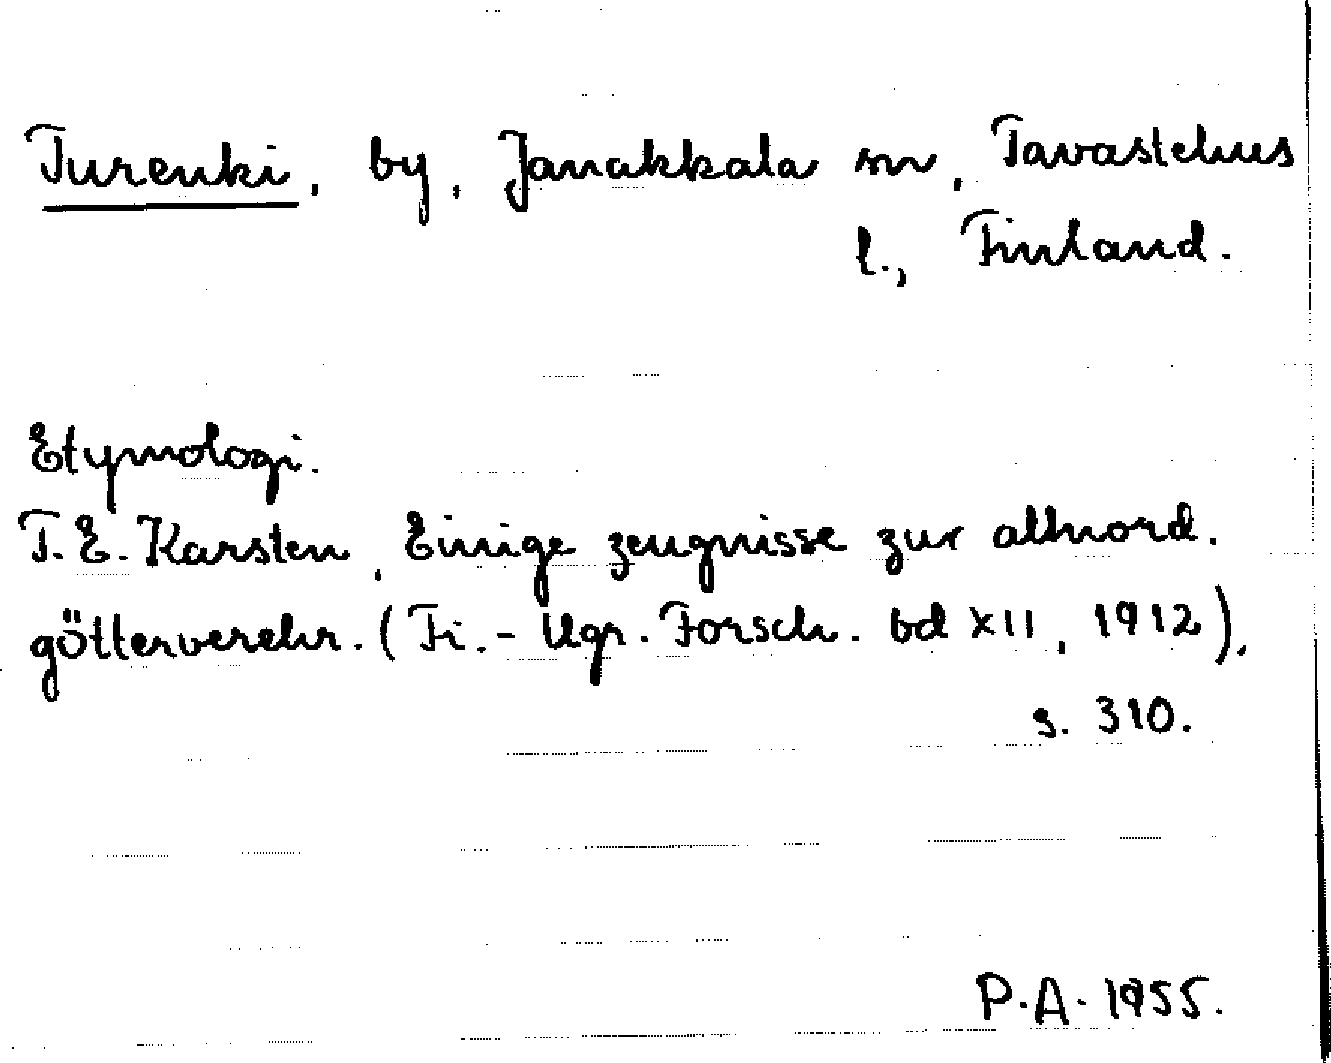 Turenki, by, Janakkala sn, Tavastehus
l., Finland.
Etymologi.
T. E. Karsten, Einige zeugnisse zur altnord.
götterverehr. (Fi.-Ugr. Forsch. bd XII, 1912),
s. 310.
P.A. 1955.